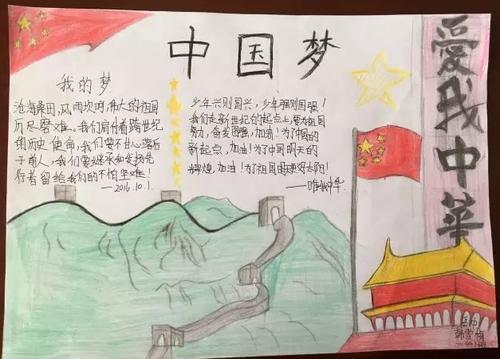 中国梦
爱我中华
我的梦
沧海桑田,风雨坎坷,伟大的祖国
历尽磨难。我们肩付着跨世纪
的历史使命,我们要不甘心落后
于前人,我们要继承和发扬先
行者留给我们的不怕艰难!
——2016.10.1.
少年兴则国兴,少年强则国强!
我们走新世纪的起点上,要为祖国
努力,奋发图强,加油!为了中国的
新起点,加油!为了中国明天的
辉煌,加油!为了祖国更好的太阳!